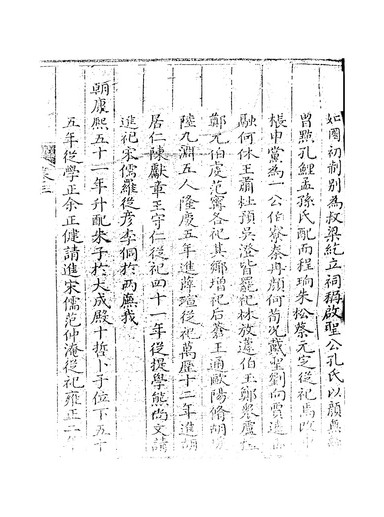 如國初制別為叔梁紇立祠稱啟聖公孔氏以顏無繇
曾點孔鯉孟孫氏配而程珦朱松蔡元定從祀焉改申
棖申黨為一公伯寮秦冉顏何荀況戴聖劉向賈逵馬
融何休王肅杜預吳澄皆罷祀林放蘧伯玉鄭衆盧植
鄭元服虔范甯各祀其鄉增祀后蒼王通歐陽脩胡瑗
陸九淵五人隆慶五年進薛瑄從祀萬歷十二年進胡
居仁陳獻章王守仁從祀四十一年從提學熊尚文請
進祀宋儒羅從彥李侗於兩廡我
朝康熙五十一年升配朱子於大成殿十哲卜子位下五十
五年從學正余正健請進宋儒范仲淹從祀雍正二年
卷三